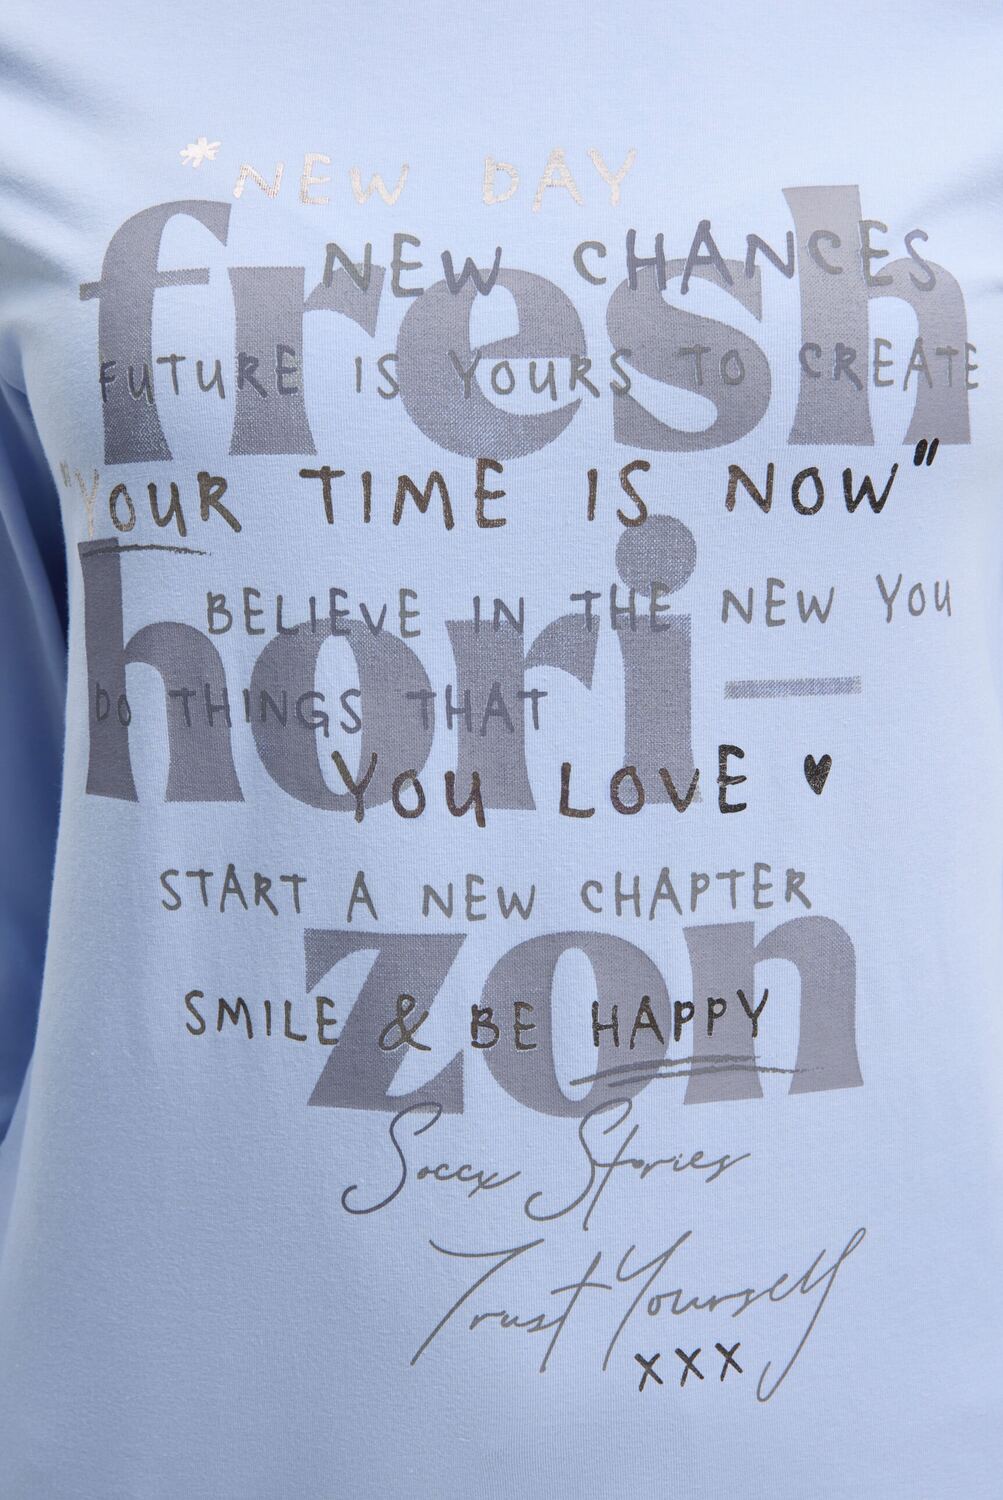 *NEW DAY
fresh
NEW CHANCES
FUTURE IS YOURS TO CREATE
"YOUR TIME IS NOW"
hori-
BELIEVE IN THE NEW YOU
DO THINGS THAT
YOU LOVE ♥
START A NEW CHAPTER
zon
SMILE & BE HAPPY
Soccx Stories
Trust Yourself
XXX